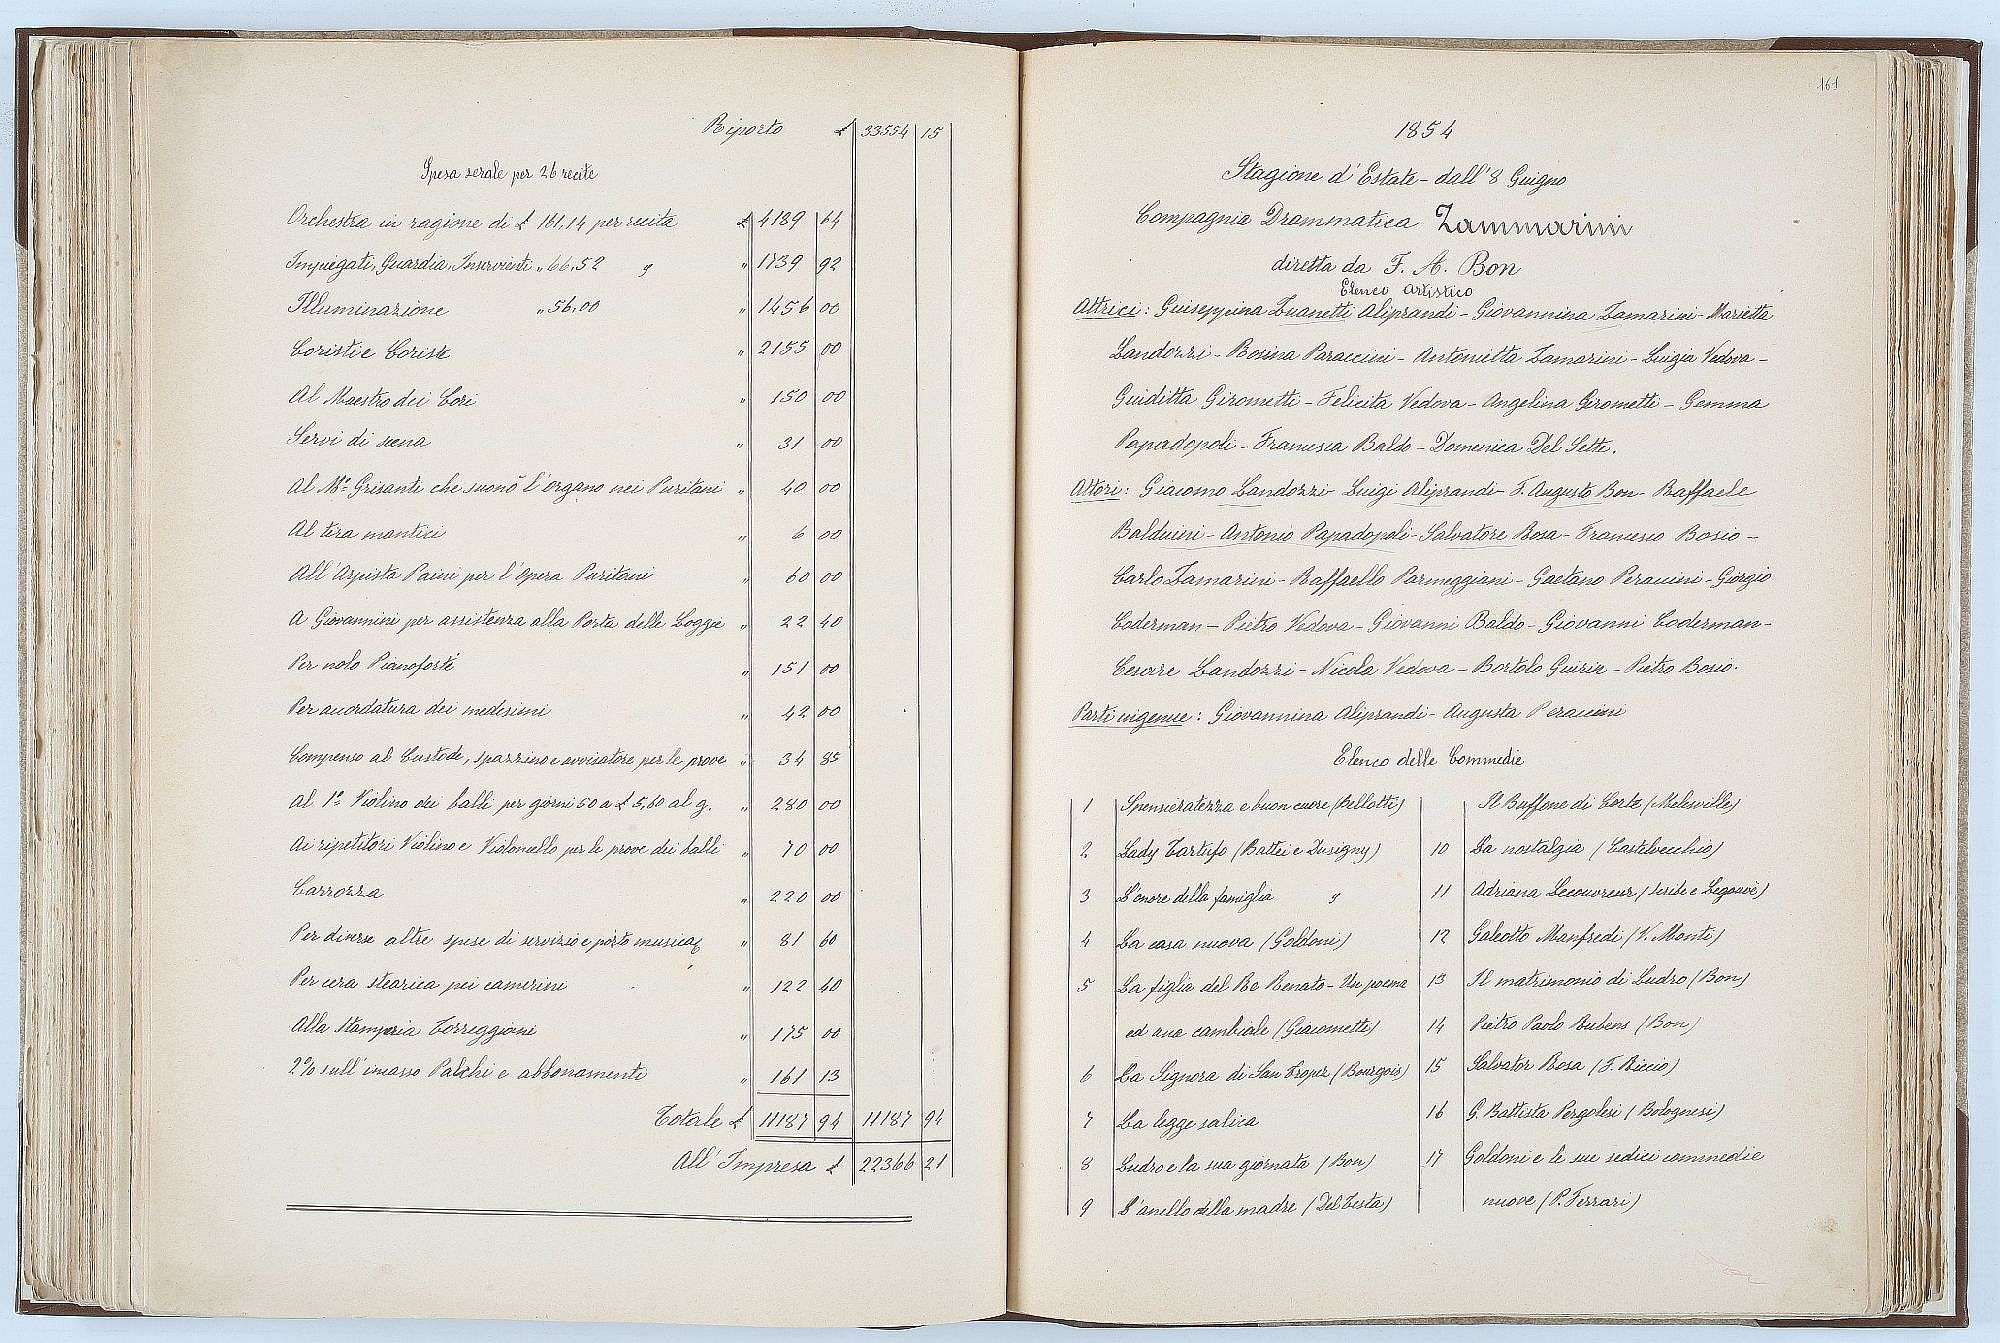 Riporto £ 33554 15
Spesa serale per 26 recite
Orchestra in ragione di £ 161,14 per recita £ 4189 64
Impiegati, Guardia, Inservienti „ 66,52 „ „ 1739 92
Illuminazione „ 56,00 „ 1456 00
Coristi e Coriste „ 2155 00
Al Maestro dei Cori „ 150 00
Servi di scena „ 31 00
Al Mo. Grisanti che suonò l'organo nei Puritani „ 40 00
Al tira mantici „ 6 00
All'Arpista Paini per l'Opera Puritani „ 60 00
A Giovannini per assistenza alla Porta delle Loggie „ 22 40
Per nolo Pianoforte „ 151 00
Per accordatura dei medesimi „ 42 00
Compenso al Custode, spazzino e avvisatore per le prove „ 34 85
Al 1o. Violino dei balli per giorni 50 a £ 5,60 al g. „ 280 00
Ai ripetitori Violino e Violoncello per le prove dei balli „ 70 00
Carrozza „ 220 00
Per diverse altre spese di servizio e porto musica „ 81 60
Per cera stearica pei camerini „ 122 40
Alla Stamperia Torreggiani „ 175 00
2% sull'incasso Palchi e abbonamenti „ 161 13
Totale £ 11187 94 11187 94
All'Impresa £ 22366 21
161
1854
Stagione d'Estate - dall'8 Guigno
Compagnia Drammatica Zammarini
diretta da F. A. Bon
Elenco Artistico
Attrici: Guiseppina Zuanetti Aliprandi - Giovannina Zamarini - Marietta
Landozzi - Rosina Paraccini - Antonietta Zamarini - Luigia Vedova -
Guiditta Girometti - Felicita Vedova - Angelina Girometti - Gemma
Papadopoli - Francesca Baldo - Domenica Del Sette.
Attori: Giacomo Landozzi - Luigi Aliprandi - F. Augusto Bon - Raffaele
Balduini - Antonio Papadopoli - Salvatore Rosa - Francesco Bosio -
Carlo Zamarini - Raffaello Parmeggiani - Gaetano Peraccini - Giorgio
Coderman - Pietro Vedova - Giovanni Baldo - Giovanni Coderman -
Cesare Landozzi - Nicola Vedova - Bortolo Guizie - Pietro Bosio.
Parti ingenue: Giovannina Aliprandi - Augusta Peraccini
Elenco delle Commedie
1 Spensieratezza e buon cuore (Bellotti)
2 Lady Tartufo (Battei e Dusigny)
3 L'onore della famiglia „
4 La casa nuova (Goldoni)
5 La figlia del Re Renato - Un poema
ed una cambiale (Giacometti)
6 La Signora di San Tropez (Bourgois)
7 La legge salica
8 Ludro e la sua giornata (Bon)
9 L'anello della madre (Del Testa)
Il Buffone di Corte (Melesville)
10 La nostalgia (Castelvecchio)
11 Adriana Lecouvreur (Scribe e Legouvè)
12 Galeotto Manfredi (V. Monti)
13 Il matrimonio di Ludro (Bon)
14 Pietro Paolo Rubens (Bon)
15 Salvator Rosa (F. Riccio)
16 G. Battista Pergolesi (Bolognesi)
17 Goldoni e le sue sedici commedie
nuove (P. Ferrari)